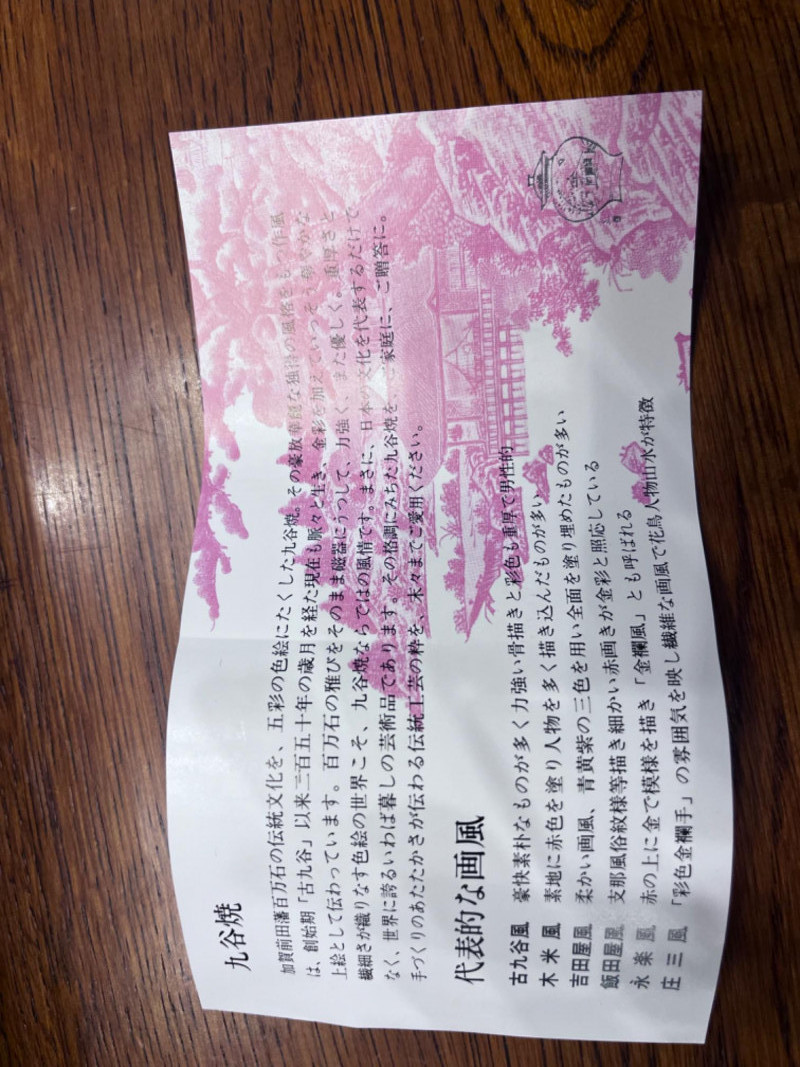 九谷焼
加賀前田藩百万石の伝統文化を、五彩の色絵にたくした九谷焼。その豪放華麗な独得の風格をもつ作風
は、創始期「古九谷」以来三百五十年の歳月を経た現在も脈々と生き、金彩を加えていっそう華やかな
上絵として伝わっています。百万石の雅びをそのまま磁器にうつして、力強く、また優しく。重厚さと
繊細さが織りなす色絵の世界こそ、九谷焼ならではの風情です。まさに、日本の文化を代表するだけで
なく、世界に誇るいわば暮しの芸術品であります。その格調にみちた九谷焼を、ご家庭に、ご贈答に。
手づくりのあたたかさが伝わる伝統工芸の粋を、末々までご愛用ください。
代表的な画風
古九谷風 豪快素朴なものが多く力強い骨描きと彩色も重厚で男性的
木米風 素地に赤色を塗り人物を多く描き込んだものが多い
吉田屋風 柔かい画風、青黄紫の三色を用い全面を塗り埋めたものが多い
飯田屋風 支那風俗紋様等描き細かい赤画きが金彩と照応している
永楽風 赤の上に金で模様を描き「金襴風」とも呼ばれる
庄三風 「彩色金襴手」の雰囲気を映し繊維な画風で花鳥人物山水が特徴